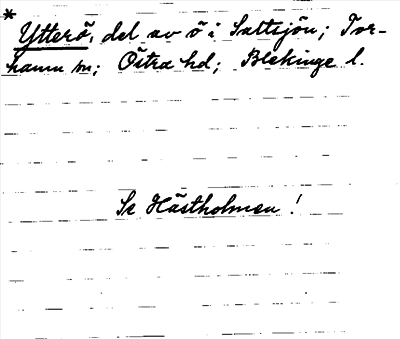 *
Ytterö, del av ö i Saltsjön; Tor-
hamn sn; Östra hd; Blekinge l.
Se Hästholmen!